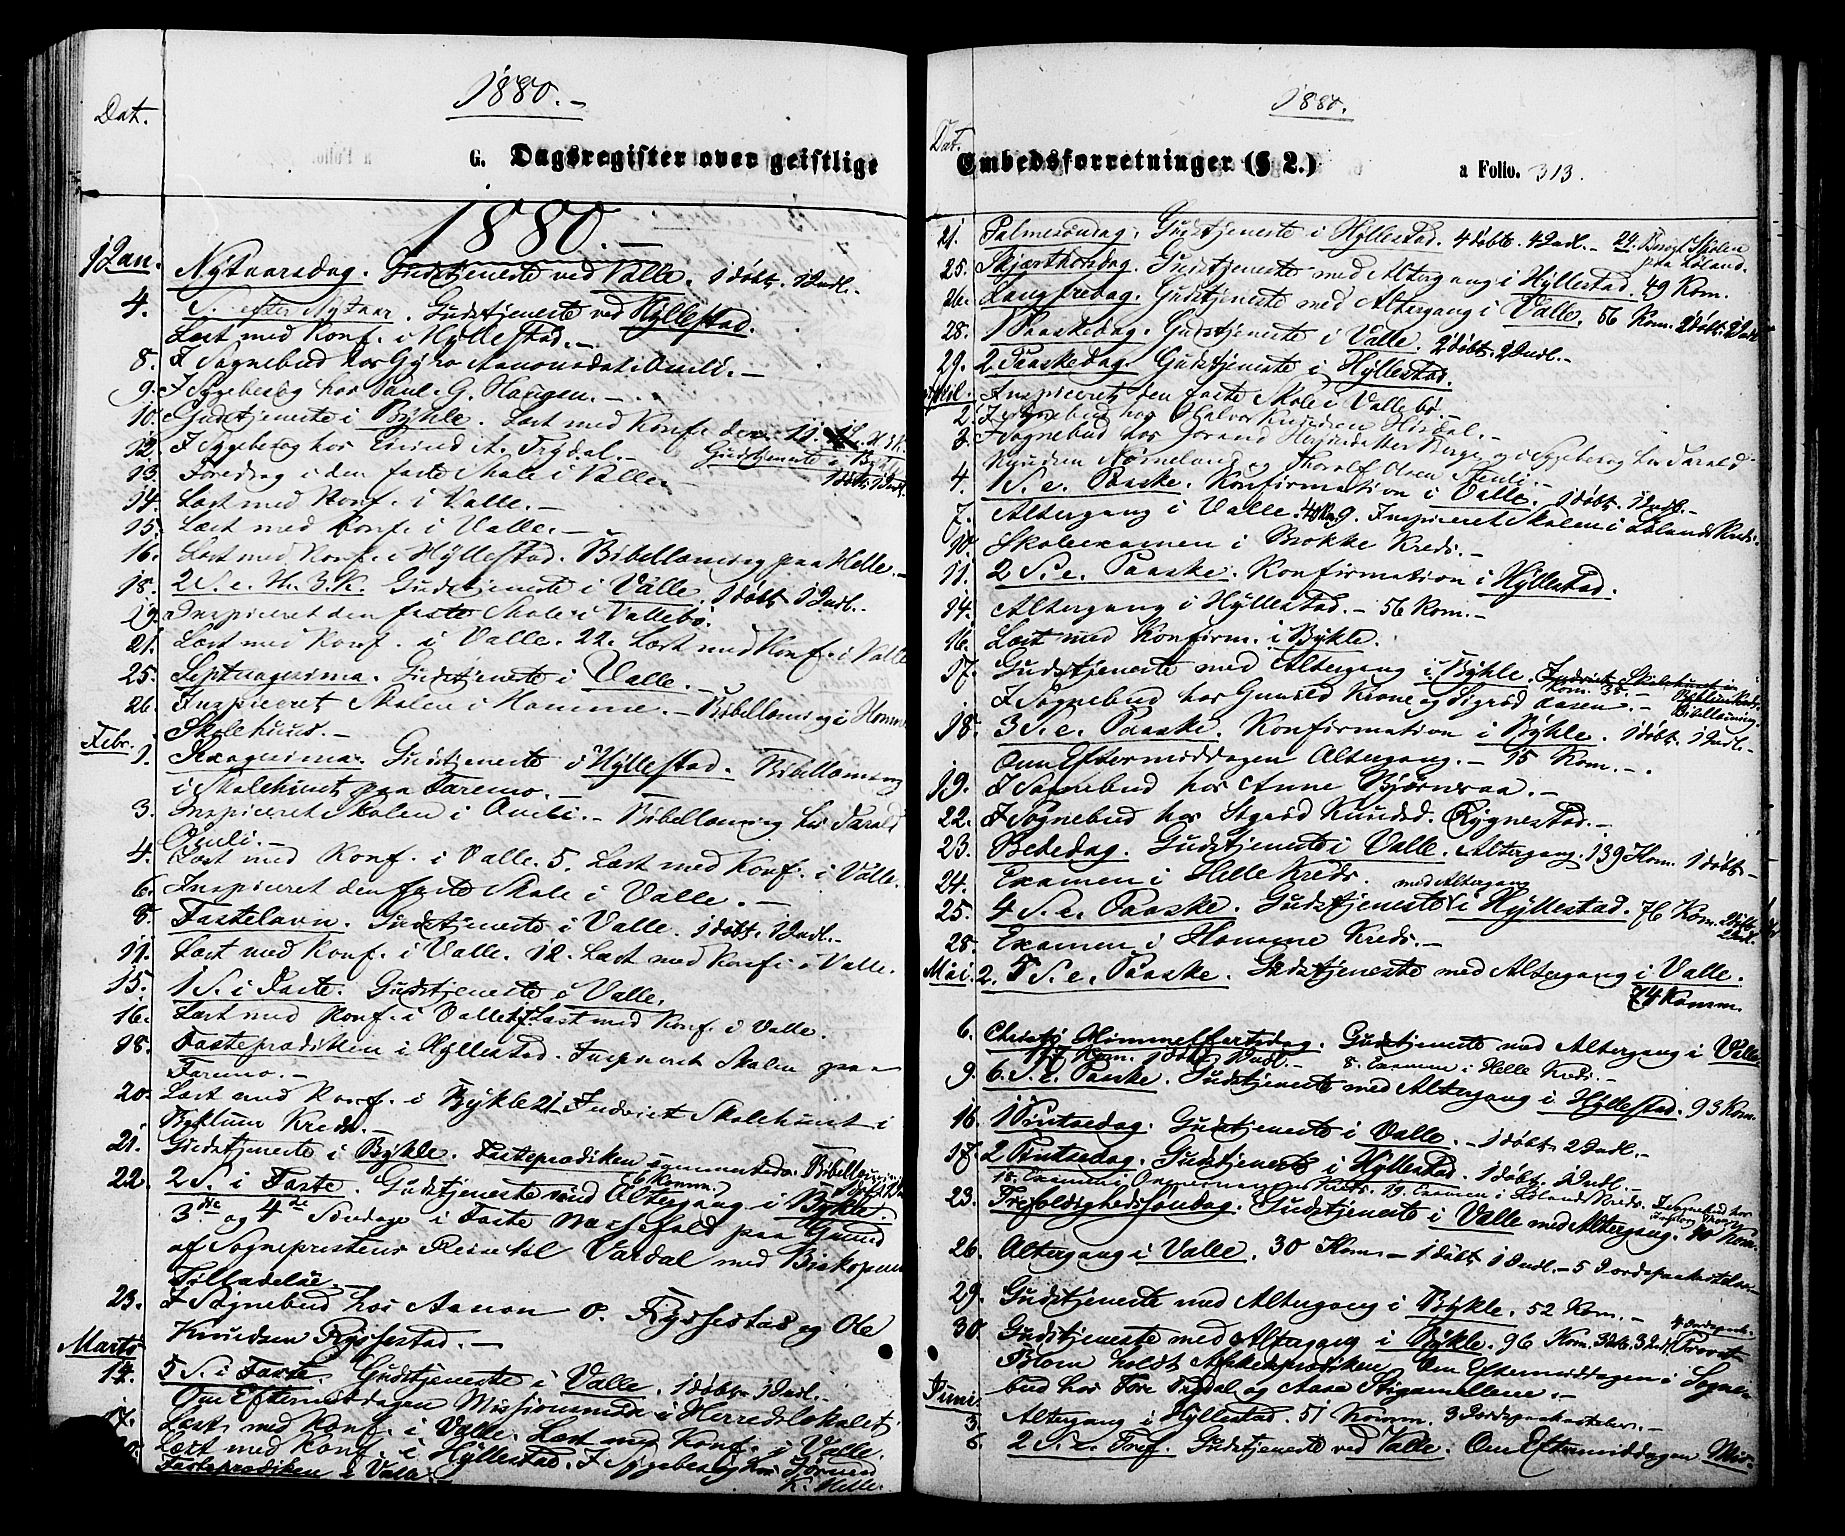 1880.-
Dat.
G. Dagsregister over geistlige
1880.-
1 Jan. Nytaarsdag. Gudstjeneste ved Valle. 1 døbt. 1 Indl.-
4. S. efter Nytaar. Gudstjeneste ved Hyllestad.
Læst med Konf. i Hyllestad.-
8. I Sognebud hos Gyro Aanonsdat. Omlid.-
9. I Sygebesøg hos Paul G. Haugen.-
10. Gudstjeneste i Bykle. Læst med Konf. den 11.
12. I Sygebesøg hos Eivind A. Trydal.- Gudstjeneste i Bykle
1 døbt 1 Indl.
13. Foredrag i den faste Skole i Valle.-
14. Læst med Konf. i Valle.-
15. Læst med Konf. i Valle.-
16. Læst med Konf. i Hyllestad. Bibellæsning paa Helle.-
18. 2 S. e. H. 3. K. Gudstjeneste i Valle. 1 døbt 1 Indl.-
19. Inspiceret den faste Skole i Vallebø.
21. Læst med Konf. i Valle. 22. Læst med Konf. i Valle
25. Septuagesima. Gudstjeneste i Valle.-
26. Inspiceret Skolen i Homme.- Bibellæsning i Homme
Skolehuus.-
Febr. 1. Gudstjeneste i Hyllestad. Bibellæsning
i Skolehuset paa Faremo.-
3. Inspiceret Skolen i Omlid.- Bibellæsning hos Tarald
Omlid.-
4. Læst med Konf. i Valle. 5. Læst med Konf. i Valle.
6. Inspiceret den faste Skole i Valle.-
8. Fastelavn. Gudstjeneste i Valle. 1 døbt. 1 Indl.-
11. Læst med Konf. i Valle. 12. Læst med Konf. i Valle.
15. 1 S. i Faste. Gudstjeneste i Valle.
16. Læst med Konf. i Valle. 17. Læst med Konf. i Valle.
18. Fasteprædiken i Hyllestad. Inspiceret Skolen paa
Faremo.-
20. Læst med Konf. i Bykle. 21. Indviet Skolehuset i
Byklum Kreds.-
21. Gudstjeneste i Bykle. Fasteprædiken sammesteds. Bibellæsning
22. 2 S. i Faste. Gudstjeneste med Altergang i Bykle. 6 Komm.
3die og 4de Søndage i Faste Messefald paa Grund
af Sognepræstens Reise til Vardal med Biskopens
Tilladelse.-
23. I Sognebud hos Aanon O. Rysstad og Ole
Knudsen Rysstad.-
Marts
14. 5 S. i Faste. Gudstjeneste i Valle. 1 døbt 1 Indl.-
Om Eftermiddagen Missionsmøde i Herredslokalet
17. Læst med Konf. i Valle. Læst med Konf. i Valle.
Læst med Konf. i Hyllestad. I Sygebesøg hos
K. Helle.
Fasteprædiken i Valle
1880.
Dat.
Embedsforretninger (§ 2.)
a Folio. 313.
21. Palmesøndag. Gudstjeneste i Hyllestad. 4 døbt. 4 Indl.- 24. Besøgt Skolen
paa Løland.
25. Skjærthorsdag. Gudstjeneste med Altergang i Hyllestad. 49 Kom.
26. Langfredag. Gudstjeneste med Altergang i Valle. 56 Kom. 2 døbt. 2 Indl
28. 1 Paaskedag. Gudstjeneste i Valle. 2 døbt. 2 Indl.-
29. 2 Paaskedag. Gudstjeneste i Hyllestad.
April. Inspiceret den faste Skole i Vallebø.-
2. I Sognebud hos Halvor Knudsen Hovdal.-
3. I Sognebud hos Jorand Berge, og i Sygebesøg hos Tarald
Knudsen Nomeland, Thorolf Olsen
4. 1 S. e. Paaske. Konfirmation i Valle. 1 døbt. 1 Indl.-
7. Altergang i Valle. 9. Inspiceret Skolen i Lølands Kreds.
10. Skoleexamen i Brokke Kreds.-
11. 2 S. e. Paaske. Konfirmation i Hyllestad.
14. Altergang i Hyllestad.- 56 Kom.-
16. Læst med Konfirm. i Bykle.
17. Gudstjeneste med Altergang i Bykle. Indviet Skolehuset i
Kom. 35.- Byklum Kreds.
I Sognebud hos Gunild og Sigrid Aasen.- Bibellæsning.
18. 3 S. e. Paaske. Konfirmation i Bykle. 1 døbt. 1 Indl.-
Om Eftermiddagen Altergang.- 15 Kom.-
19. I Sognebud hos Anne Bjørnaraa.-
22. I Sognebud hos Sigrid Knudsd. Rygnestad.-
23. Bededag. Gudstjeneste i Valle. Altergang. 139 Kom. 1 døbt.-
24. Examen i Helle Kreds.
med Altergang
25. 4 S. e. Paaske. Gudstjeneste i Hyllestad. 76 Kom. 2 døbt.
2 Indl.
28. Examen i Homme Kreds.-
Mai 2. 5 S. e. Paaske. Gudstjeneste med Altergang i Valle.
74 Komm.
6. Christi Himmelfartsdag. Gudstjeneste med Altergang i Valle
Kom. 1 døbt 1 Indl.- 8. Examen i Helle Kreds.-
9. 6. S. e. Paaske. Gudstjeneste med Altergang i Hyllestad. 93 Kom.
16. 1 Pintsedag. Gudstjeneste i Valle.- 1 døbt. 2 Indl.-
17. 2 Pintsedag. Gudstjeneste i Hyllestad. 1 døbt. 1 Indl.-
18. Examen i Kreds. 19. Examen i Lølands Kreds. I Sognebud hos
23. Trefoldighedssøndag. Gudstjeneste i Valle med Altergang. Kom.
26. Altergang i Valle. 30 Kom.- 1 døbt 1 Indl.- 5 Jordspaakastelser
29. Gudstjeneste med Altergang i Bykle. 52 Kom.-
30. Gudstjeneste med Altergang i Bykle. 96 Kom. 3 døbt. 3 Indl. Provst
Blom holdt Aftenprædiken. Om Eftermiddagen i Sogne-
bud hos Tore Trydal og Aase Stigamellene.-
Juni
3. Altergang i Hyllestad. 51 Komm. 3 Jordspaakastelser.-
6. 2 S. e. Tref. Gudstjeneste ved Valle. Om Eftermiddagen Mis-